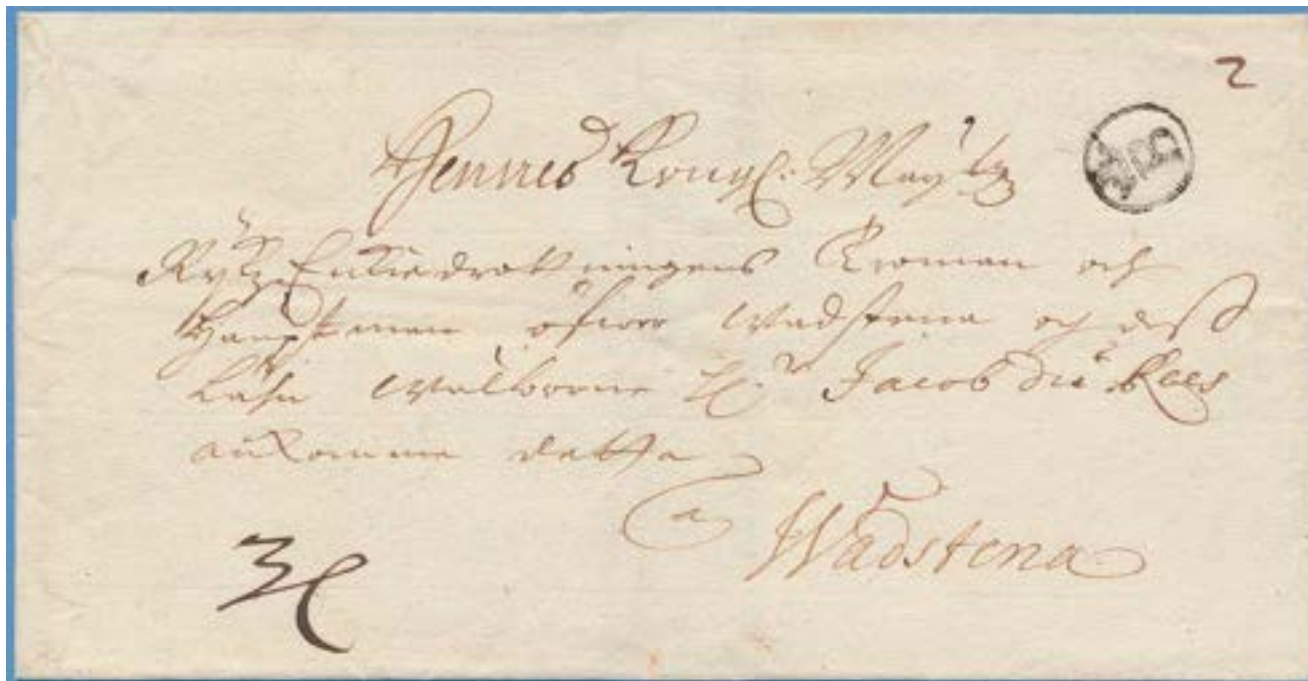 2
Hennes Kongl: Maytz
Rykz Enkiedrotningens Troman och
Hauptman öfwer Wadstena och deß
Lähn Welborne H:r Jacob du Rees
ankomme detta
a
Wadstena